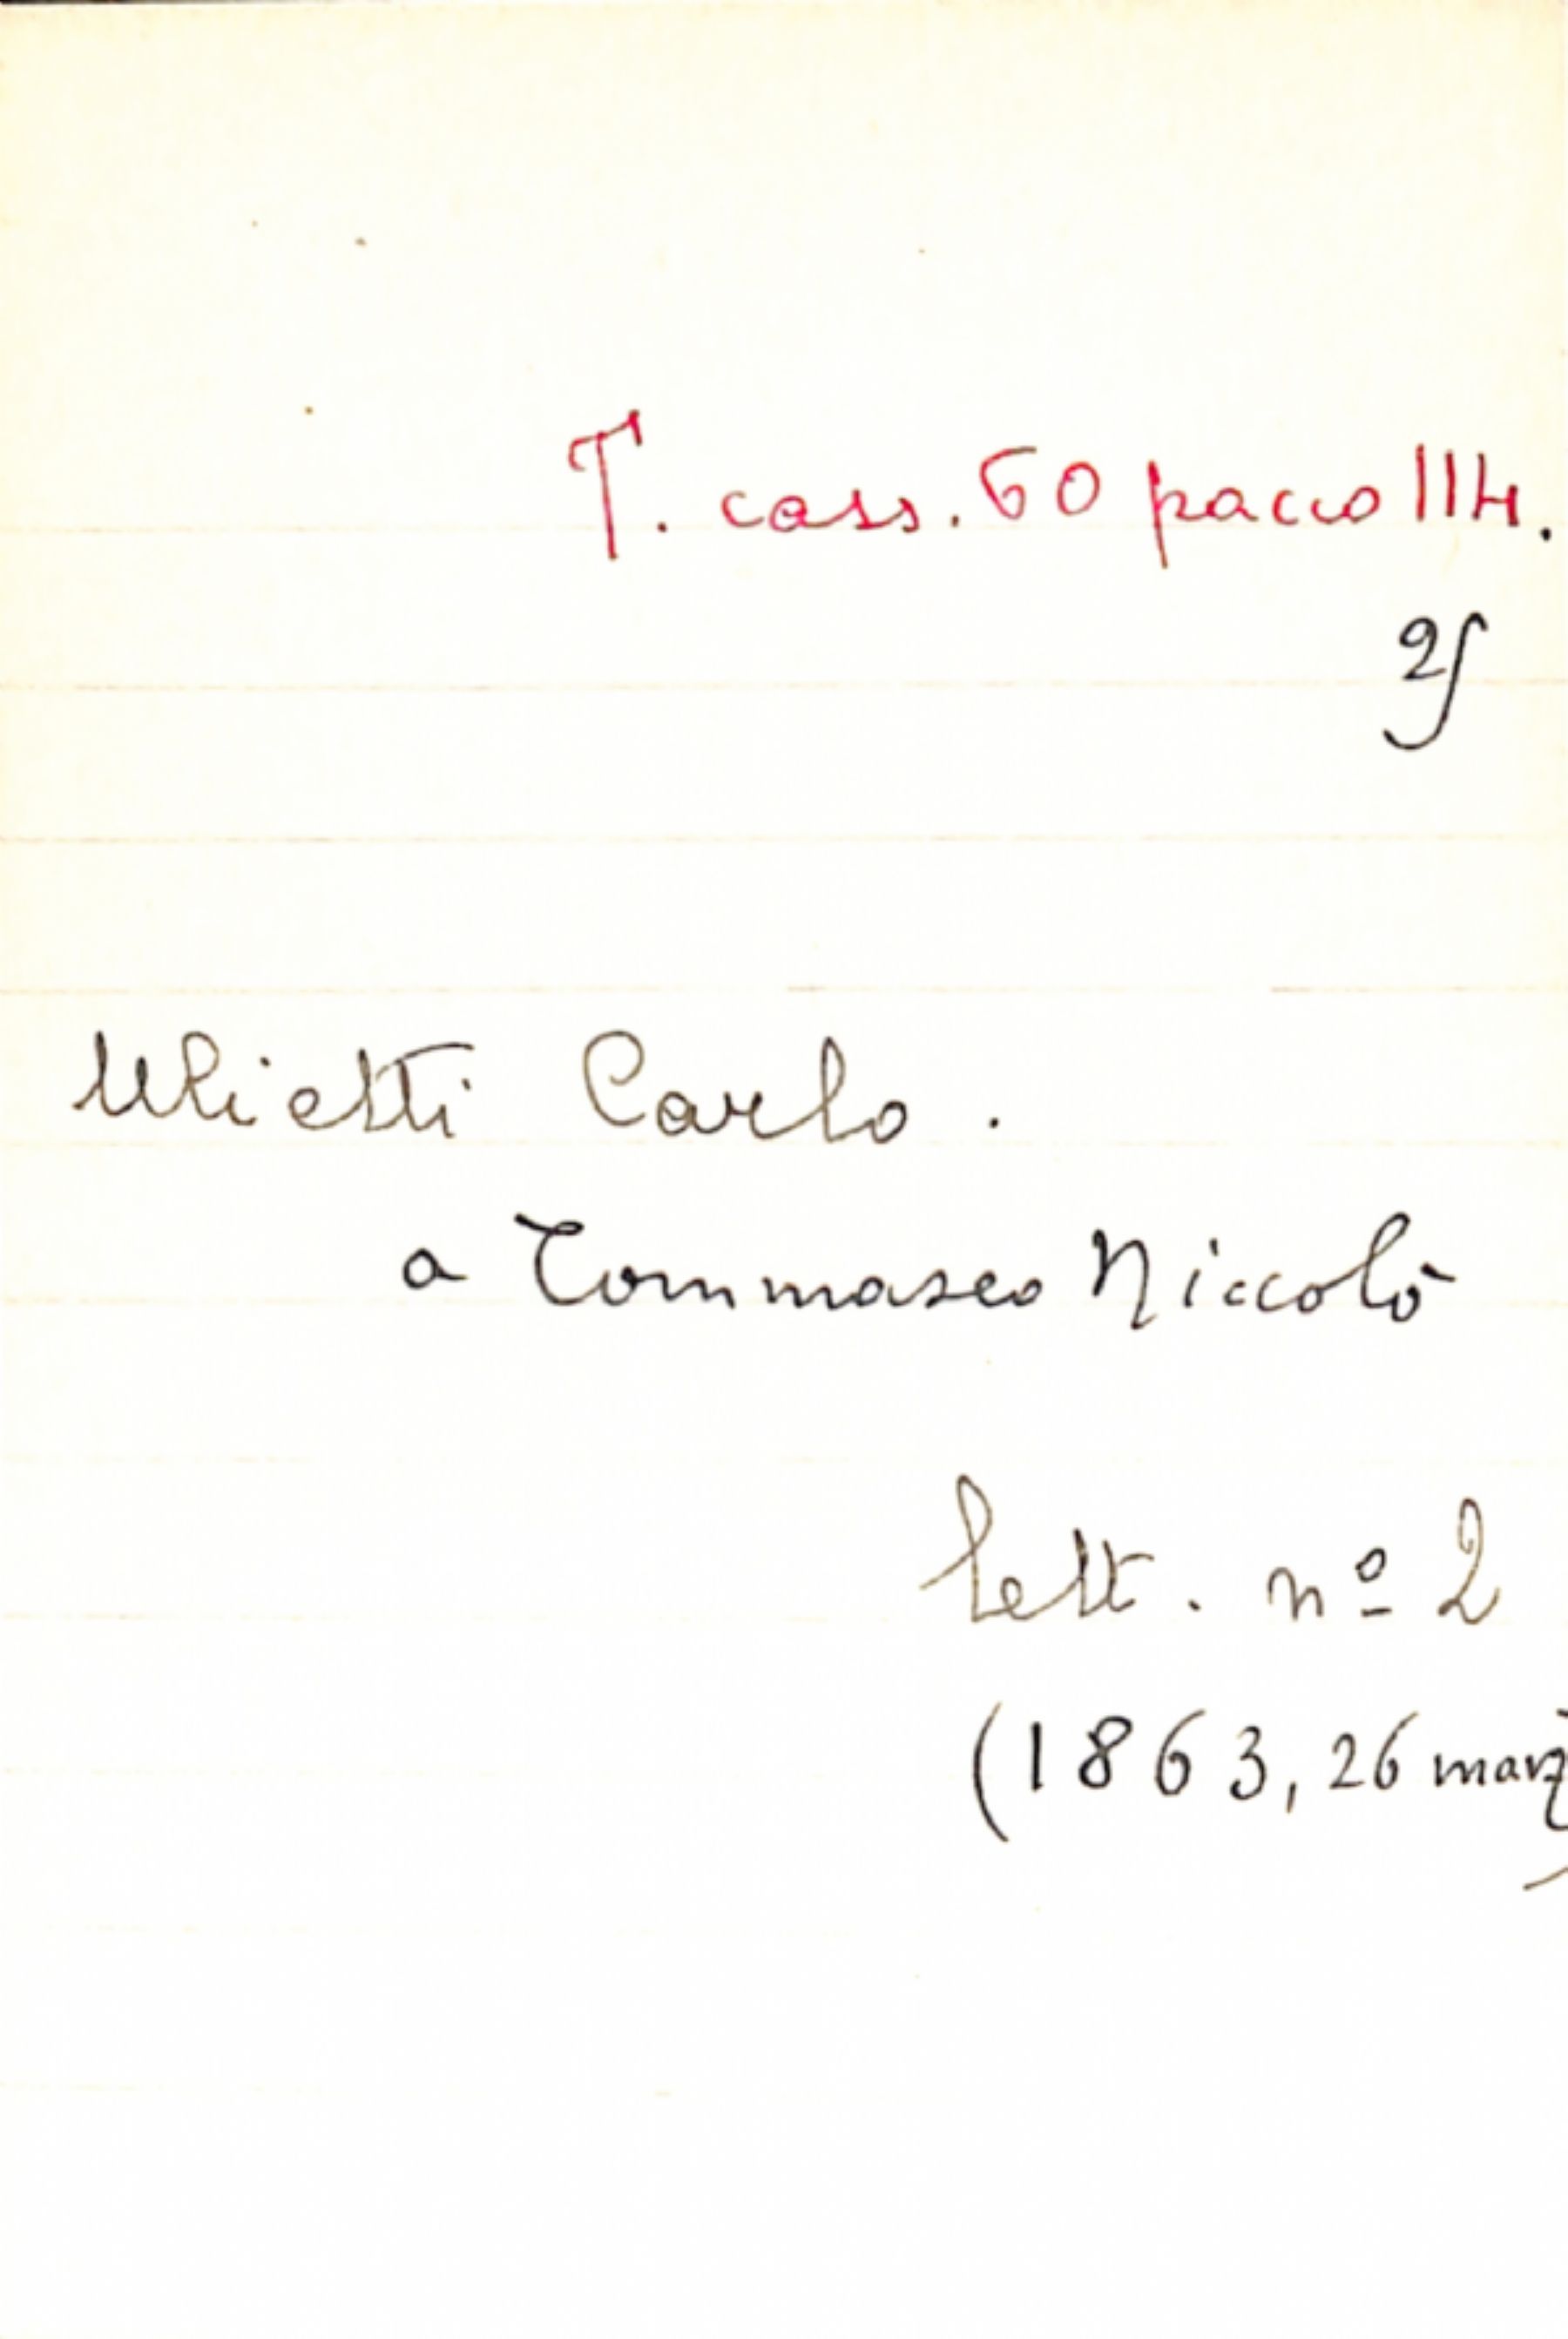 T. cass. 60 pacco 114.
25
Ulietti Carlo.
a Tommaseo Niccolò
lett. nº 2
(1863, 26 marz
)